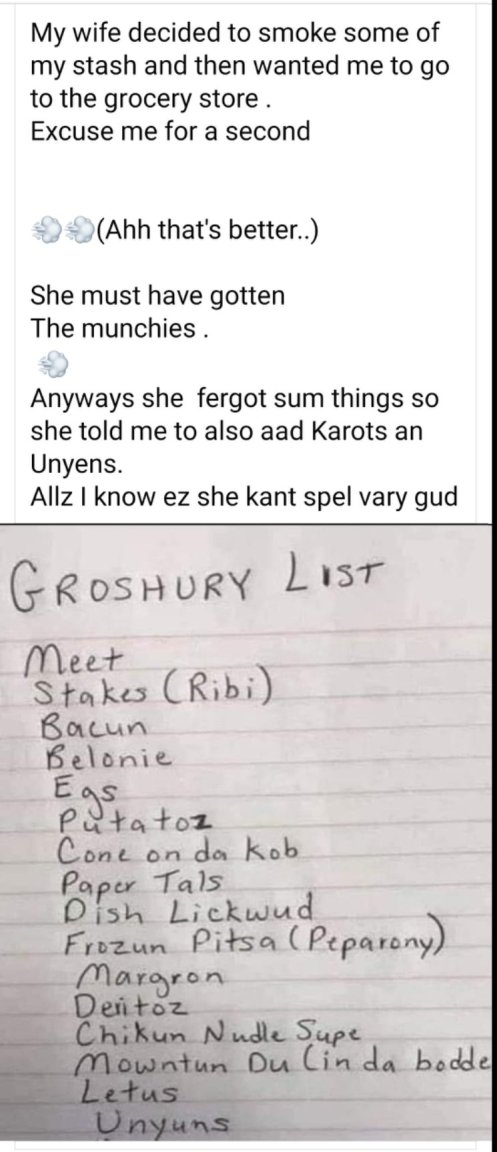 My wife decided to smoke some of
my stash and then wanted me to go
to the grocery store .
Excuse me for a second
💨💨(Ahh that's better..)
She must have gotten
The munchies .
💨
Anyways she fergot sum things so
she told me to also aad Karots an
Unyens.
Allz I know ez she kant spel vary gud
GROSHURY LIST
Meet
Stakes (Ribi)
Bacun
Belonie
Egs
Putatoz
Cone on da kob
Paper Tals
Dish Lickwud
Frozun Pitsa (Peparony)
Margron
Deritoz
Chikun Nudle Supe
Mowntun Du (in da bodde
Letus
Unyuns